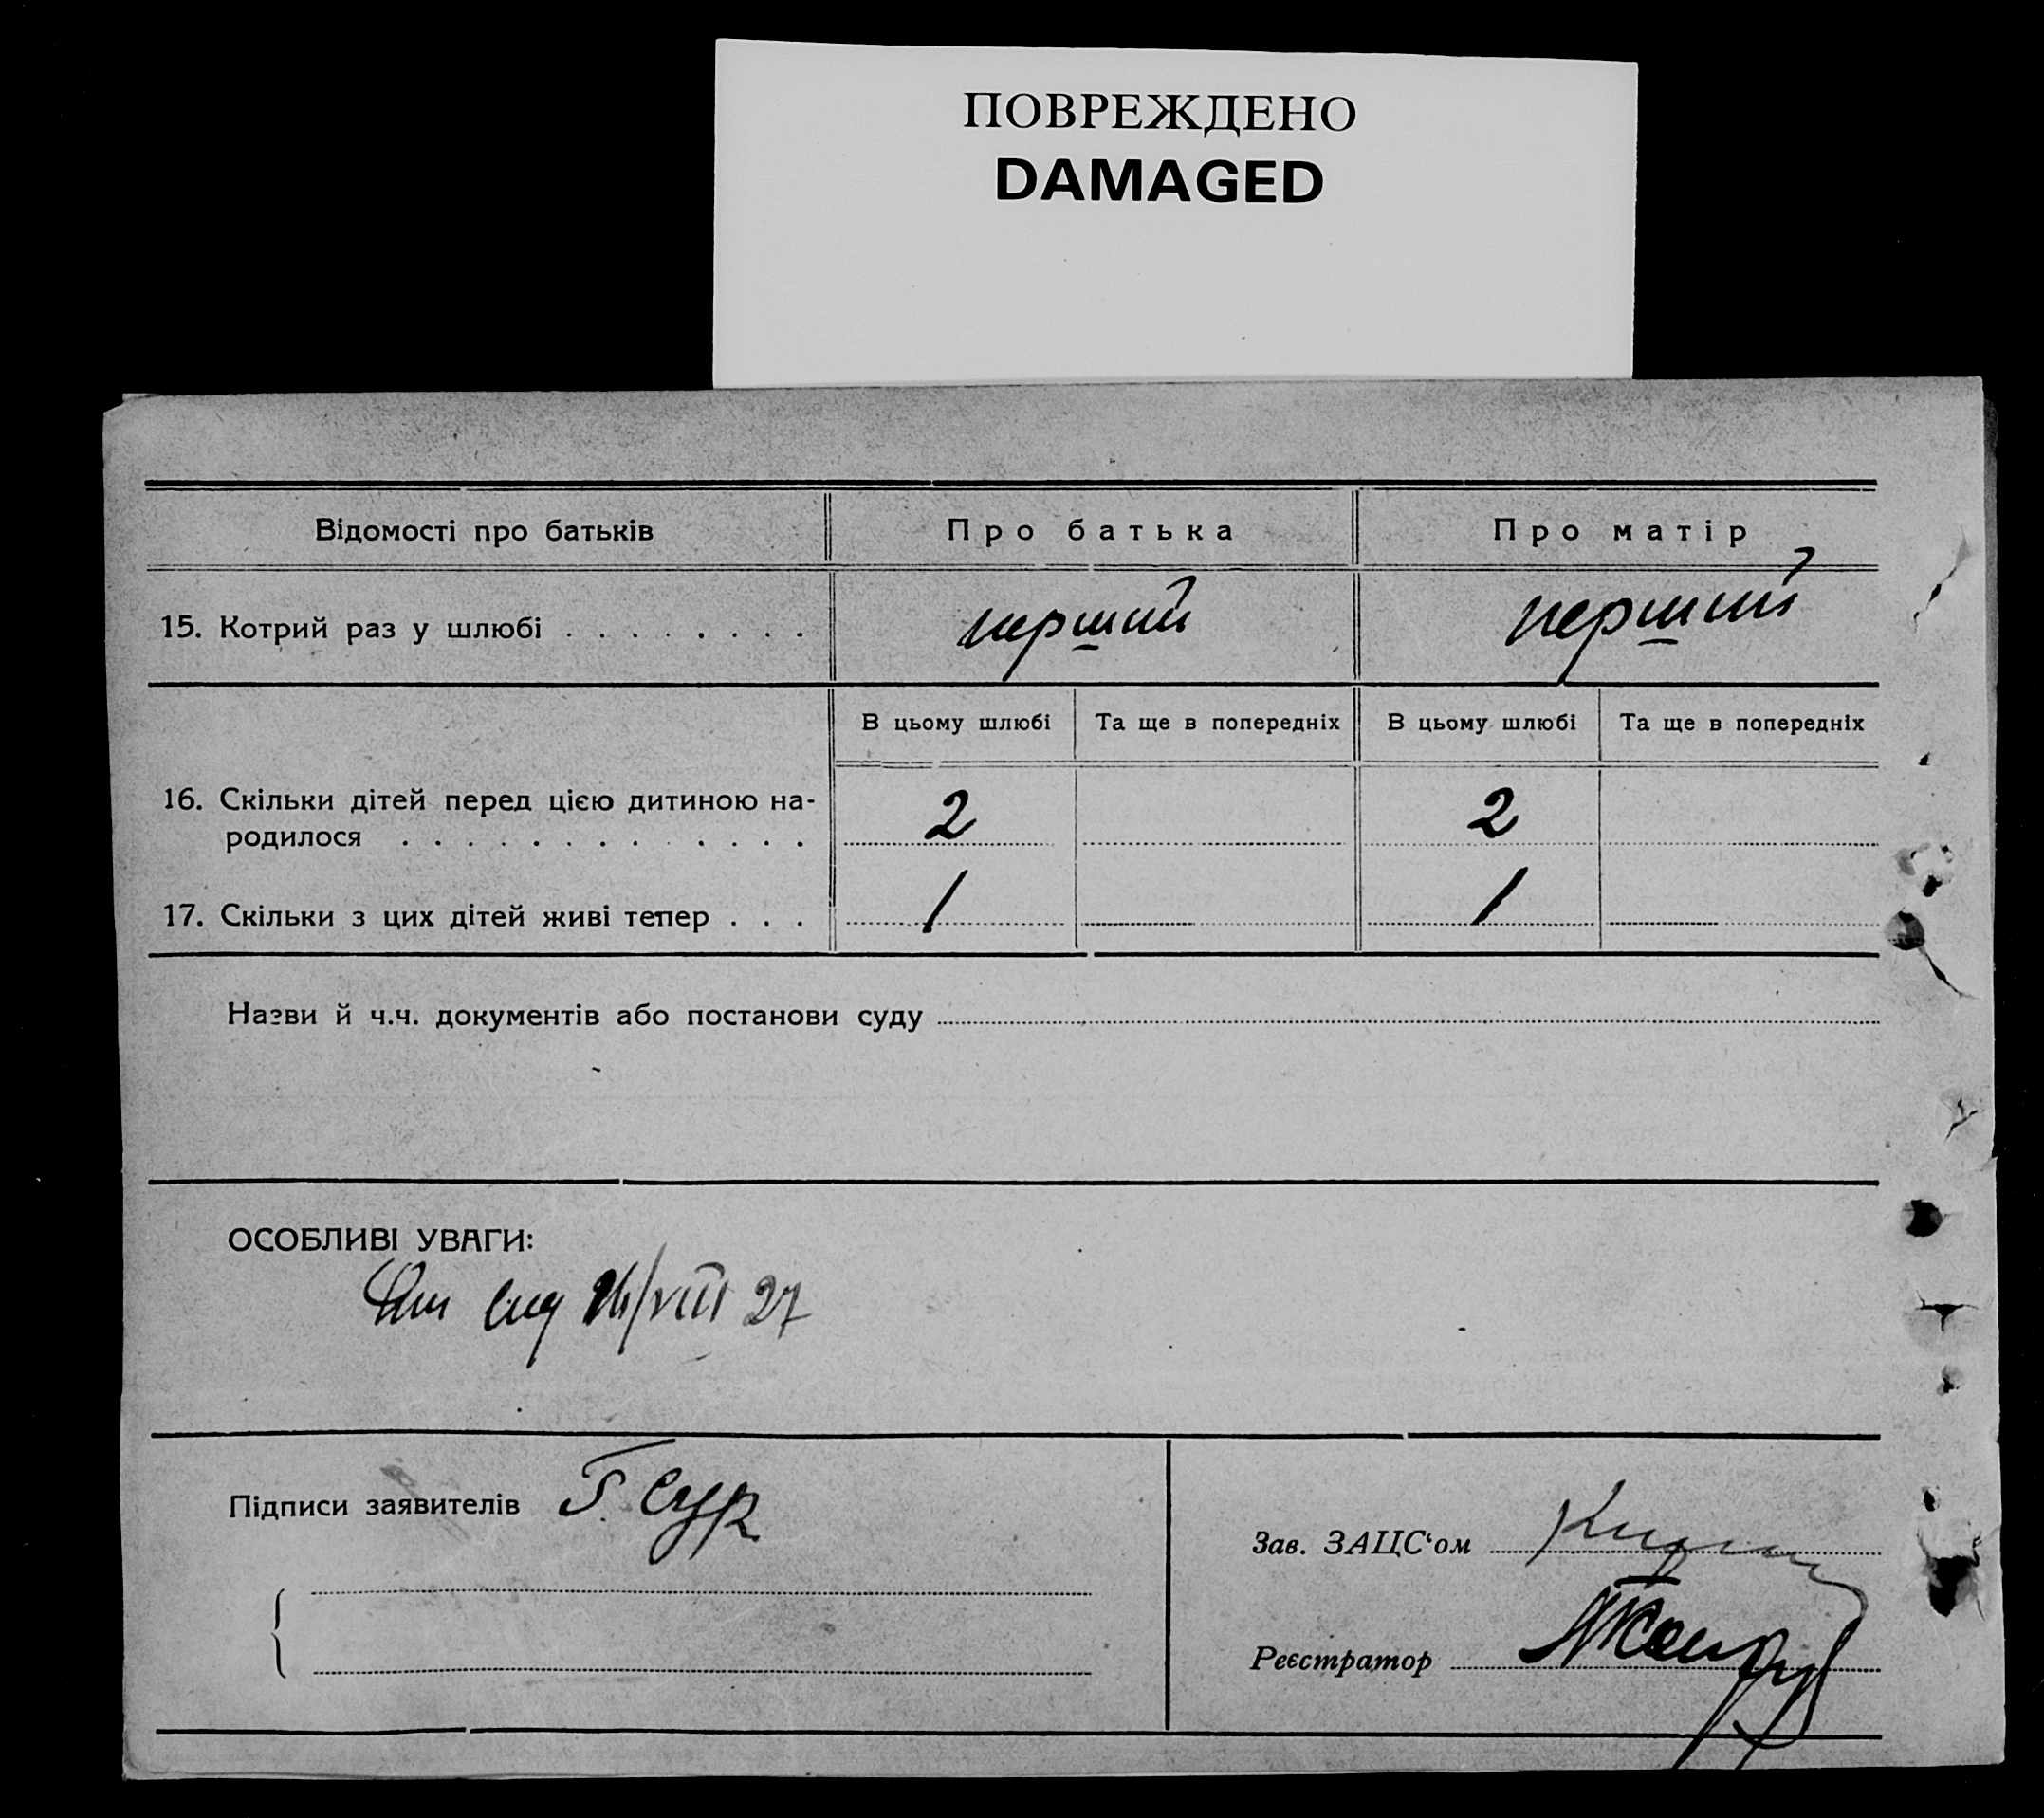 ПОВРЕЖДЕНО
DAMAGED
Відомості про батьків
Про батька
Про матір
15. Котрий раз у шлюбі . . . . . . . .
перший
перший
В цьому шлюбі
Та ще в попередніх
В цьому шлюбі
Та ще в попередніх
16. Скільки дітей перед цією дитиною на-
родилося . . . . . . . . . . . . .
2
2
17. Скільки з цих дітей живі тепер . . .
1
1
Назви й ч.ч. документів або постанови суду
ОСОБЛИВІ УВАГИ:
/VIII 27
Підписи заявителів Г. Сур
Зав. ЗАЦС‘ом
Реєстратор